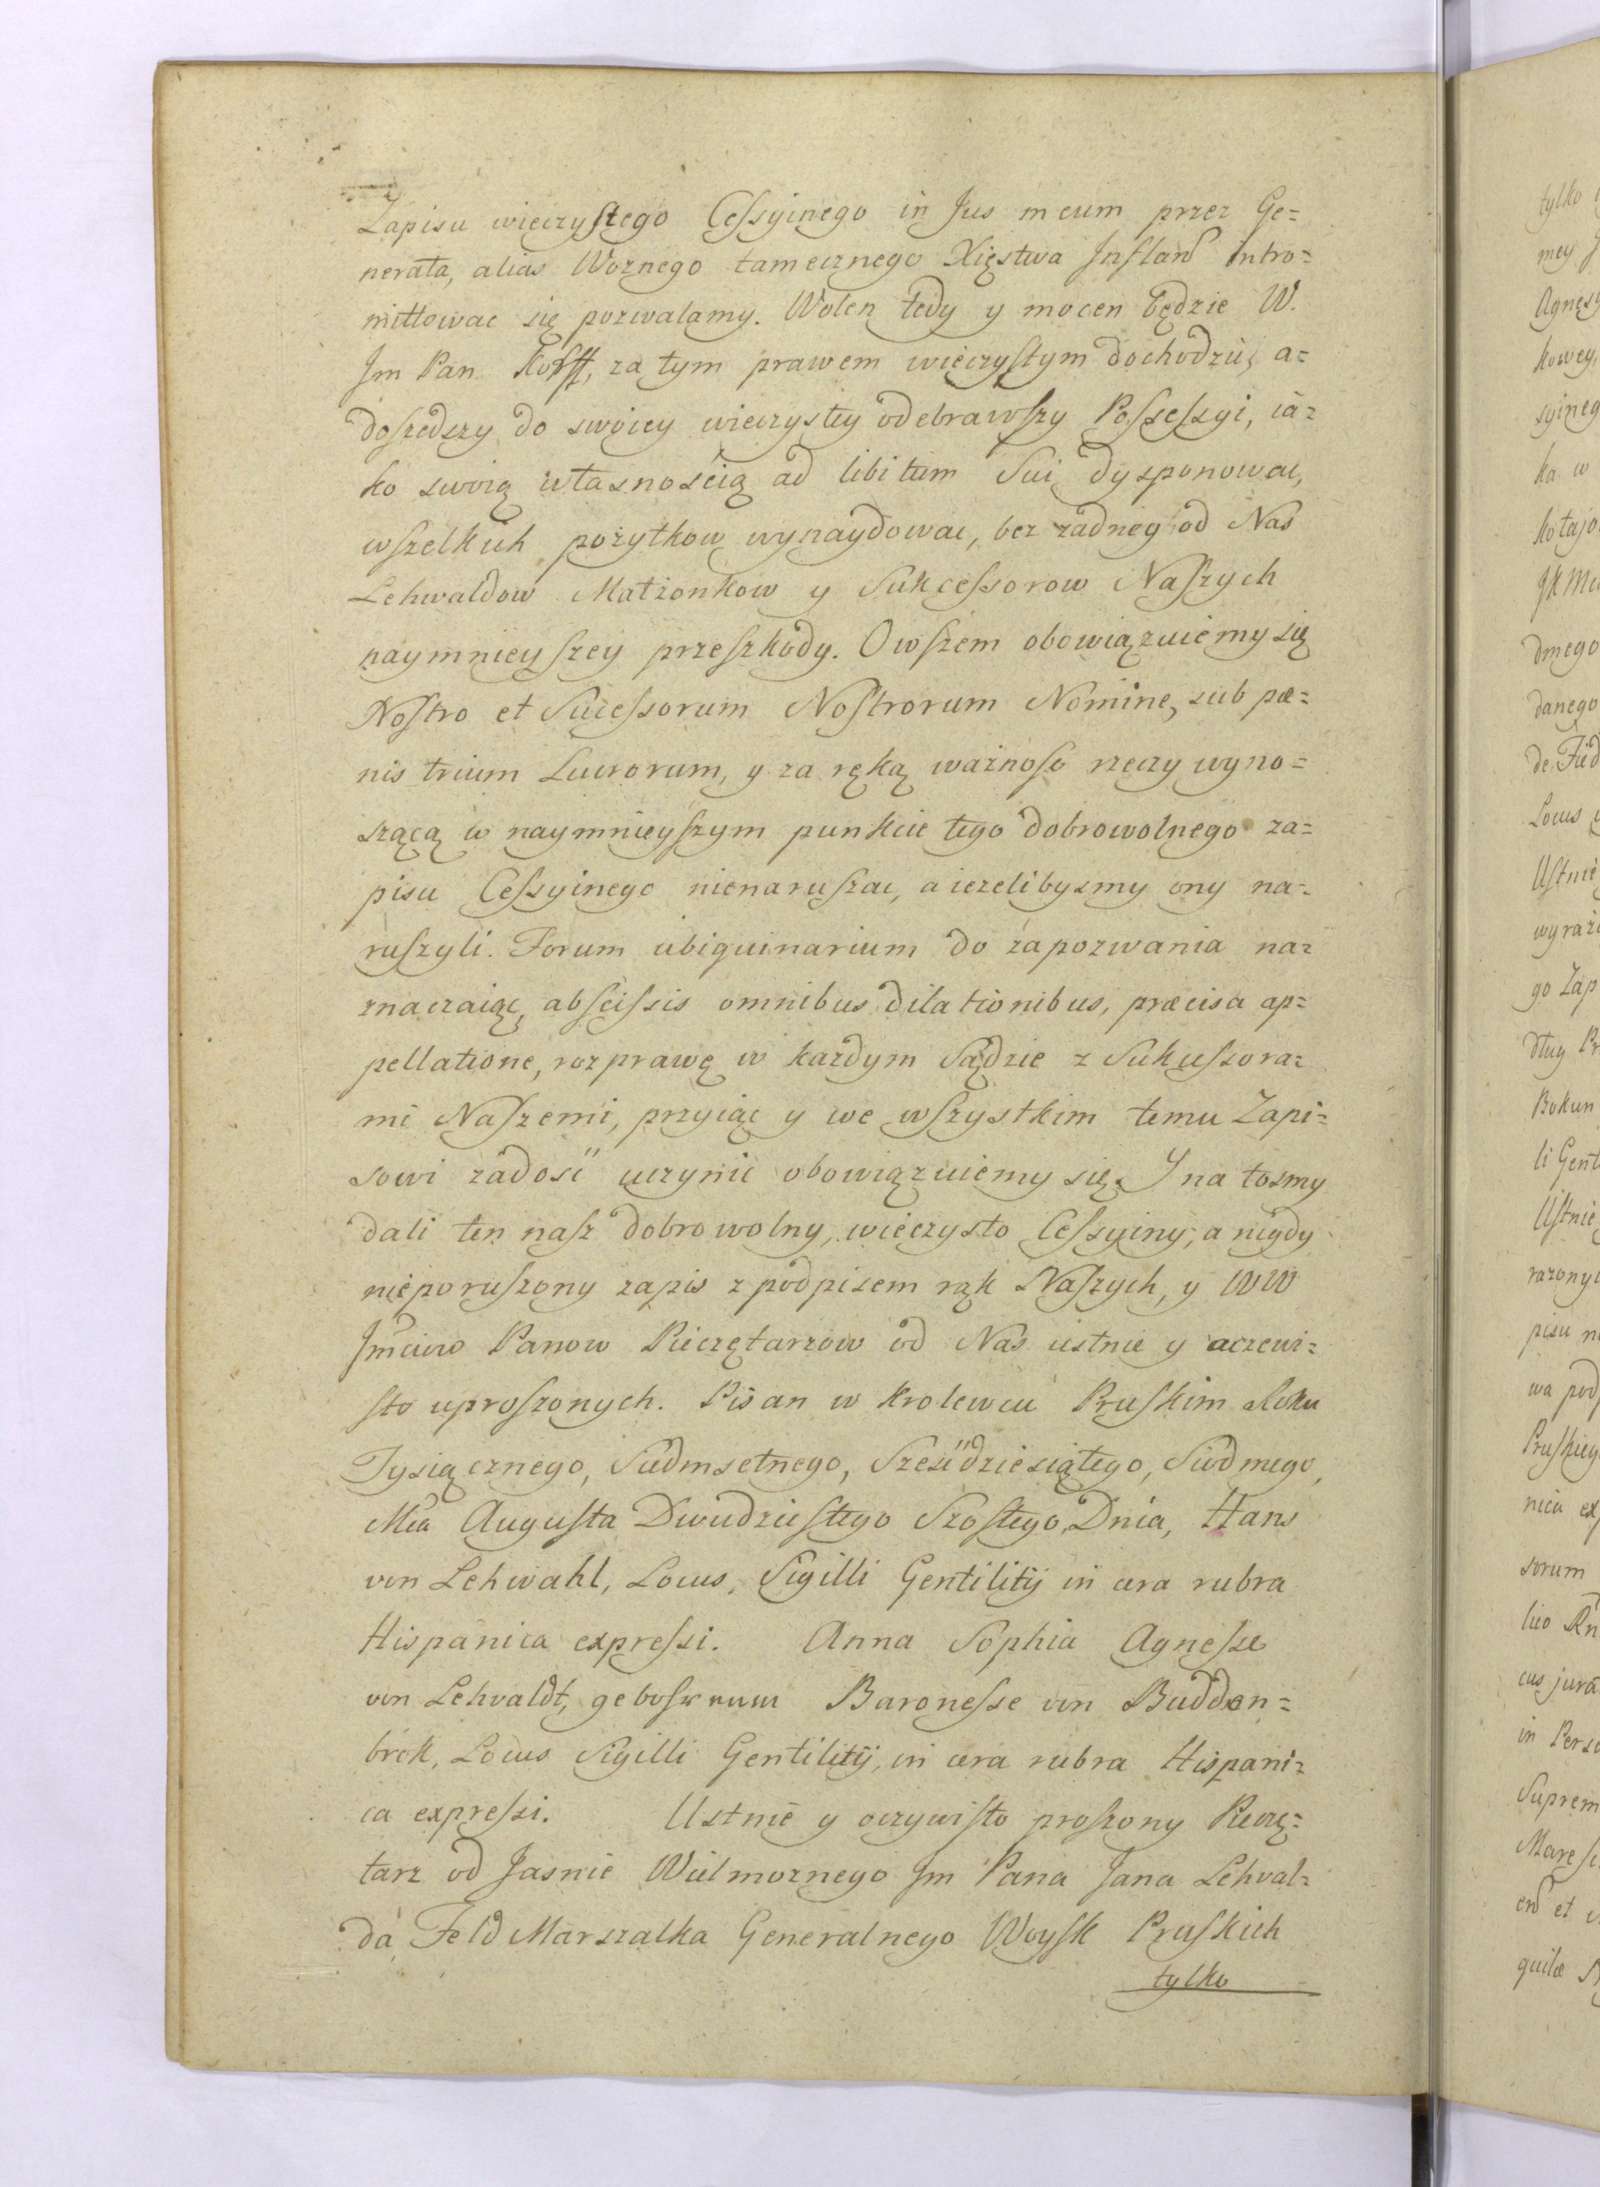 Zapisu wieczystego Cessyinego in Jus meum przez Ge=
nerała, alias Woznego tamecznego Xięstwa Jnflan̄ Intro=
mittowac się pozwalamy. Wolen tedy y mocen będzie W.
Jm Pan Korff, za tym prawem wieczystym dochodzić, a=
doszedszy do swoiey wieczystey odebrawszy Possessyi, ia=
ko swoią własnoscią ad libitum Sui dysponowac,
wszelkich pozytkow wynaydowac, bez zadney od Nas
Lehwaldow Małzonkow y Sukcessorow Naszych
naymnieyszey przeszkody. Owszem obowiązuiemy się
Nostro et Successorum Nostrorum Nomine, sub pæ=
nis trium Lucrorum, y za ręką waznosc rzeczy wyno=
szącą w naymnieyszym punkcie tego dobrowolnego za=
pisu Cessyinego nienaruszac, a iezelibysmy ony na=
ruszyli. Forum ubiquinarium do zapozwania na=
znaczaiąc, abscissis omnibus dilationibus, præcisa ap=
pellatione, rozprawę w kazdym Sądzie z Sukcessora=
mi Naszemi, przyiąc y we wszystkim temu Zapi=
sowi zadosć uczynic obowiązuiemy się. J na tosmy
dali ten nasz dobrowolny, wieczysto Cessyiny, a nigdy
nieporuszony zapis z podpisem rąk Naszych, y WW
Jmciuw Panow Pieczętarzow od Nas ustnie y oczewi=
sto uproszonych. Pisan w Krolewcu Pruskim Roku
Tysiącznego, Siedmsetnego, Szescdziesiątego, Siodmego,
Mca Augusta Dwudziestego Szostego, Dnia, Hans
von Lehwahl, Locus, Sigilli Gentilitij in cera rubra
Hispanica expressi. Anna Sophia Agnesse
von Lehvaldt, Baronesse von Budden=
brok, Locus Sigilli Gentilitij, in cera rubra Hispani=
ca expressi. Ustnie y oczywisto proszony Pieczę=
tarz od Jasnie Wielmoznego Jm Pana Jana Lehval=
da Feld Marszalka Generalnego Woysk Pruskich
tylko